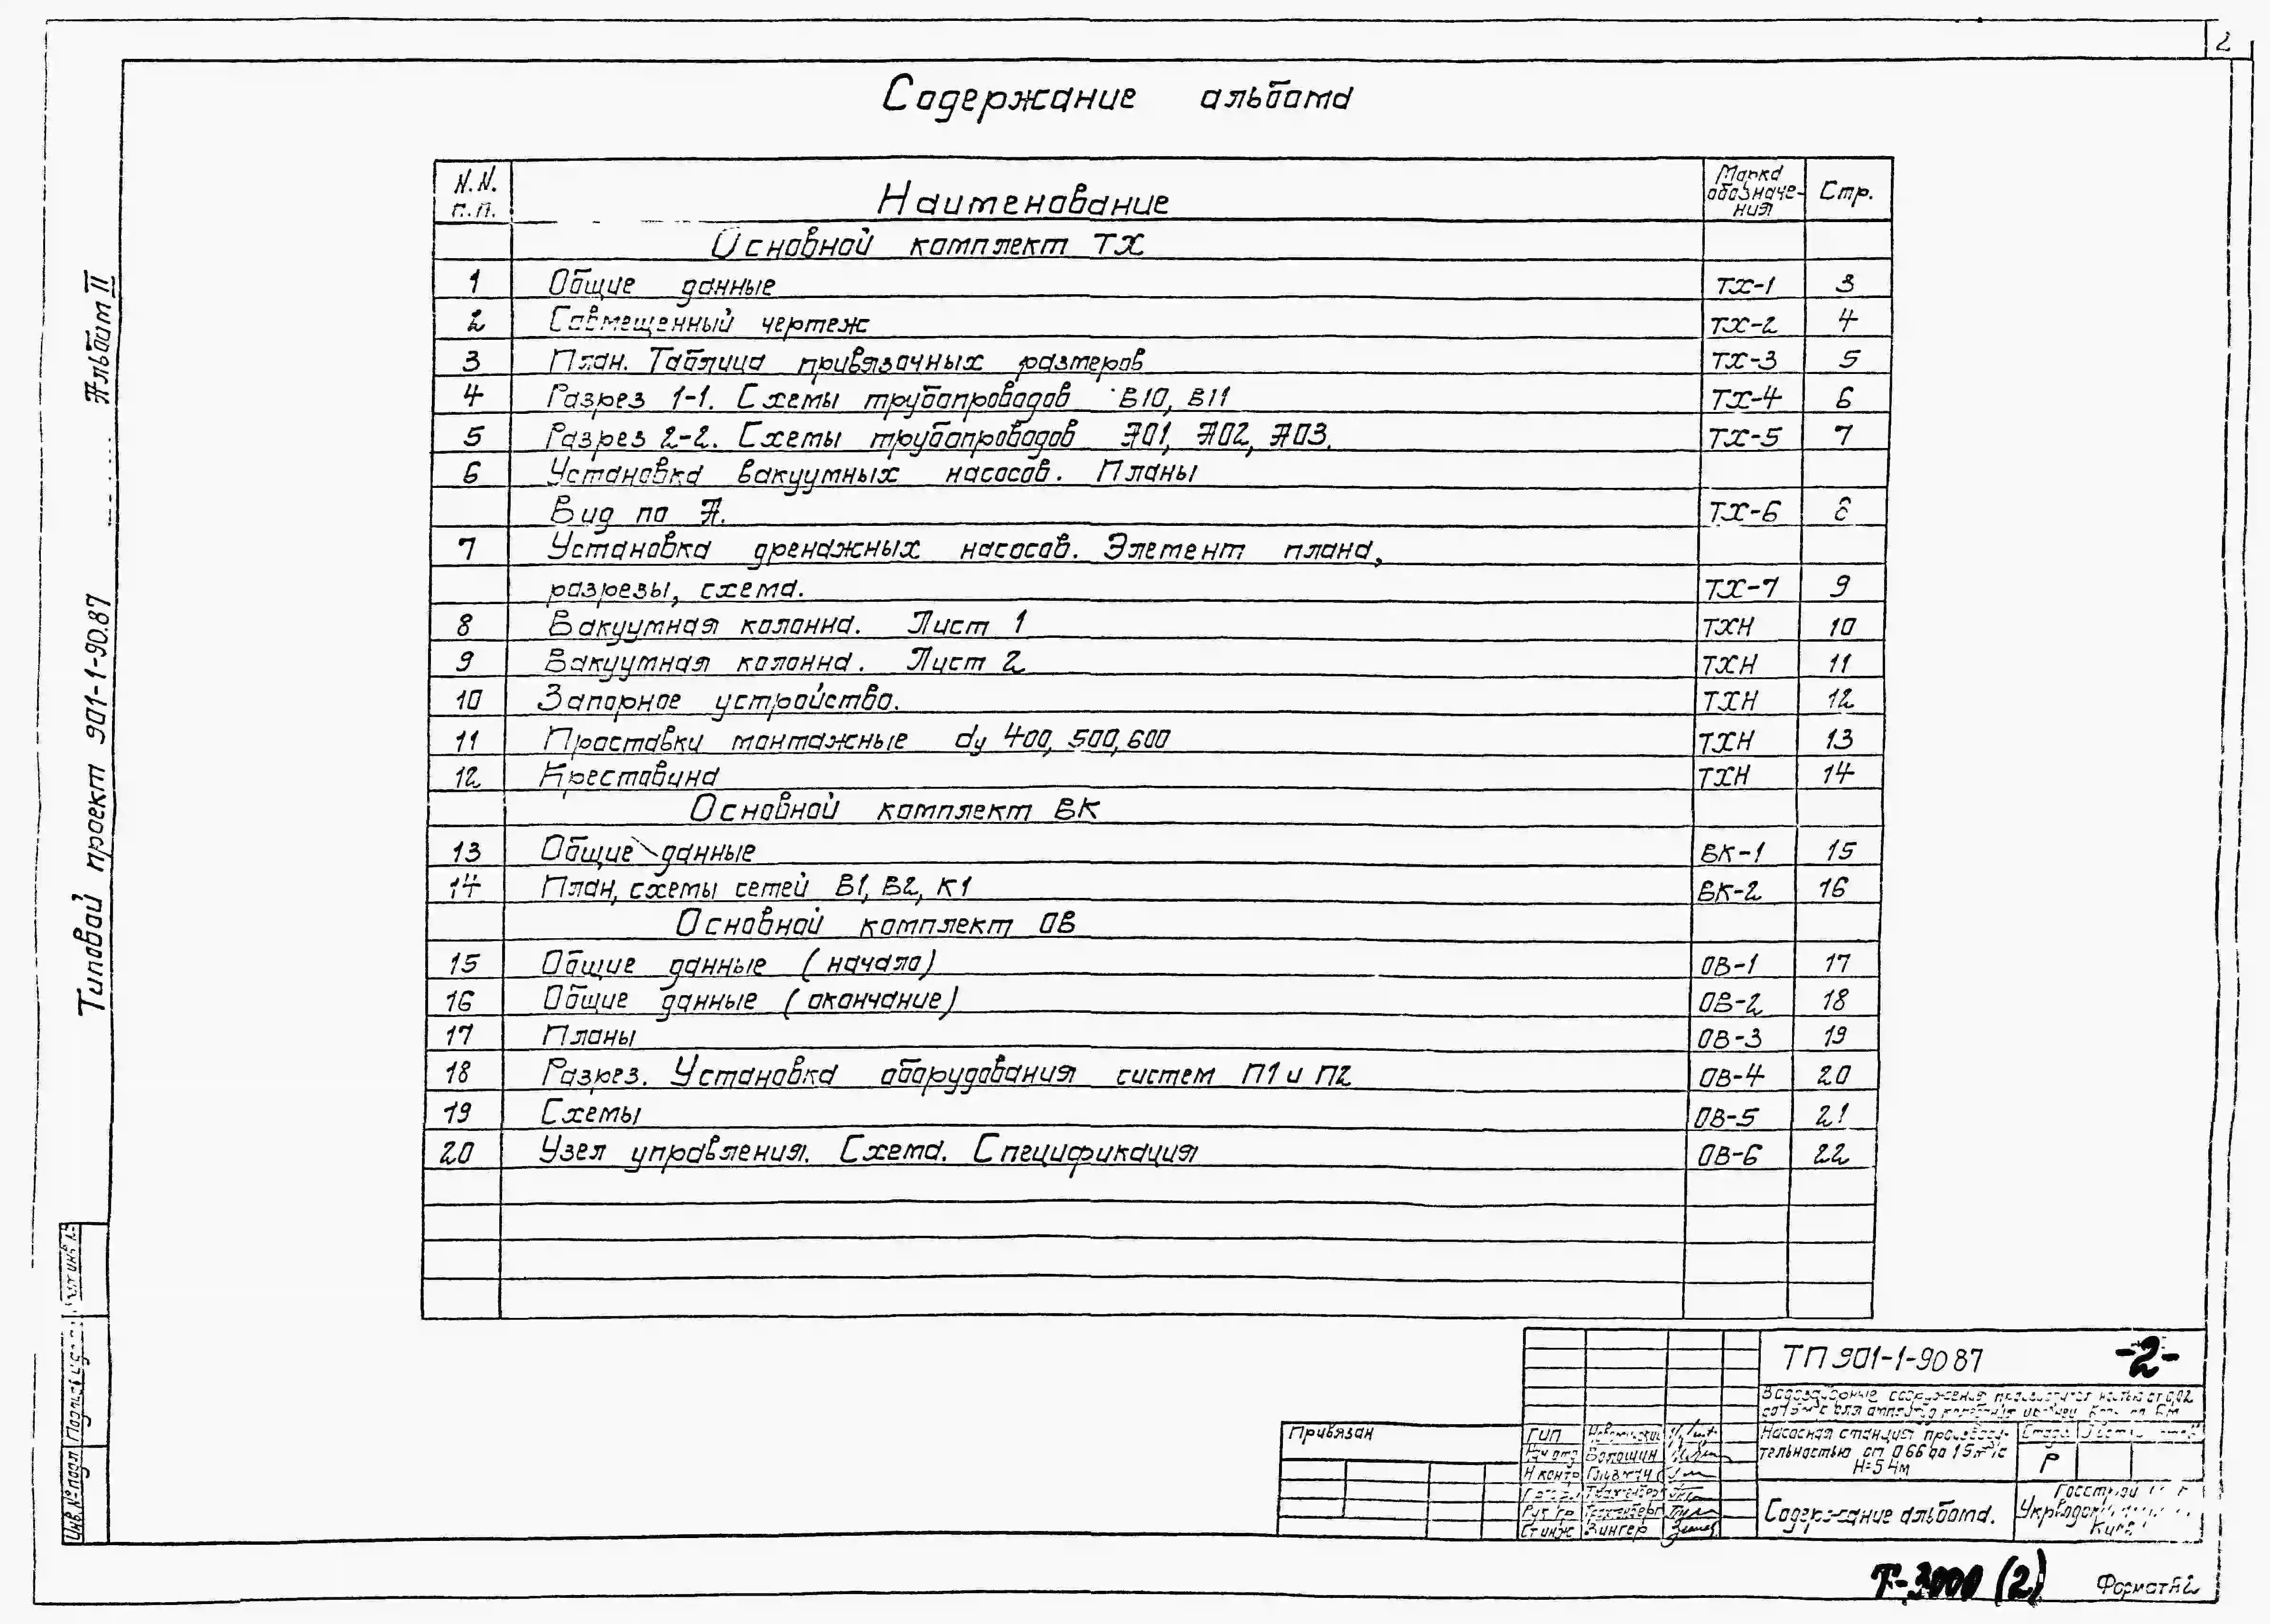 2
Содержание альбома
N.N. п.п. Наименование Марка обозначе- ния Стр.
Основной комплект ТХ
1 Общие данные ТХ-1 3
2 Совмещенный чертеж ТХ-2 4
3 План. Таблица привязочных размеров ТХ-3 5
4 Разрез 1-1. Схемы трубопроводов В10, В11 ТХ-4 6
5 Разрез 2-2. Схемы трубопроводов А01, А02, А03. ТХ-5 7
6 Установка вакуумных насосов. Планы
Вид по А. ТХ-6 8
7 Установка дренажных насосов. Элемент плана,
разрезы, схема. ТХ-7 9
8 Вакуумная колонна. Лист 1 ТХН 10
9 Вакуумная колонна. Лист 2 ТХН 11
10 Запорное устройство. ТХН 12
11 Проставки монтажные dy 400, 500, 600 ТХН 13
12 Крестовина ТХН 14
Основной комплект ВК
13 Общие данные ВК-1 15
14 План, схемы сетей В1, В2, К1 ВК-2 16
Основной комплект ОВ
15 Общие данные (начало) ОВ-1 17
16 Общие данные (окончание) ОВ-2 18
17 Планы ОВ-3 19
18 Разрез. Установка оборудования систем П1 и П2 ОВ-4 20
19 Схемы ОВ-5 21
20 Узел управления. Схема. Спецификация ОВ-6 22
Альбом II
Типовой проект 901-1-90.87
Инв.№подл
ТП 901-1-90 87 -2-
Водозаборные сооружения
Насосная станция производи-
тельностью от 0 66 до 1 5 м³/с
Н=5 4м
Р
Привязан
ГИП
Волошин
Н контр
Ст инж Зингер
Содержание альбома.
Т-3000 (2)
Формат А2